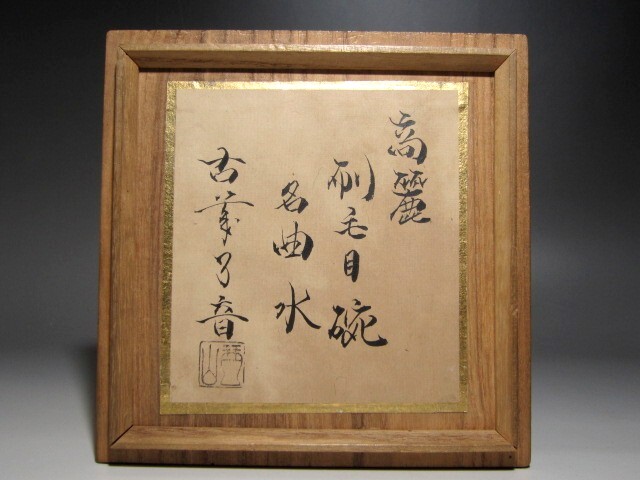 高麗
刷毛目碗
名曲水
古筆了音